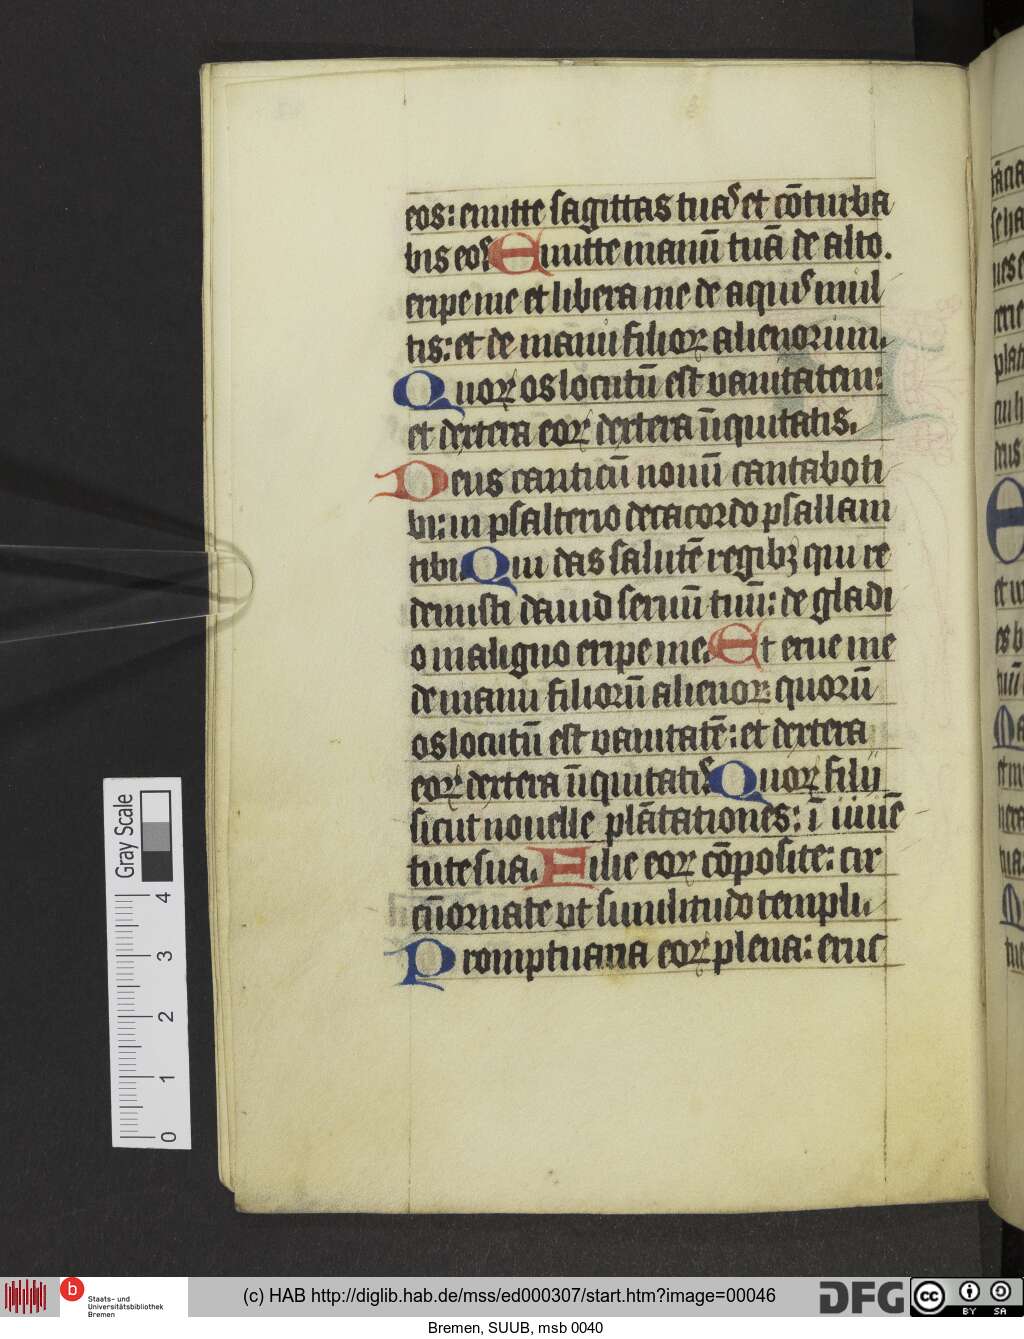 eos: emitte sagittas tuas et cōturba
bis eos Emitte manū tuā de alto.
eripe me et libera me de aquis mul
tis: et de manu filioꝝ alienorum.
Quoꝝ os locutū est vanitatem:
et dextera eoꝝ dextera ūiquitatis.
Deus canticū nouū cantabo ti
bi: in psalterio decacordo psallam
tibi. Qui das salutē regibꝫ qui re
demisti dauid seruū tuū: de gladi
o maligno eripe me. Et erue me
de manu filiorū alienoꝝ: quorū
os locutū est vanitatē: et dextera
eoꝝ dextera ūiquitatis Quoꝝ filij
sicut nouelle plātationes: ī iuuē
tute sua. Filie eoꝝ cōposite: cir
cūornate vt similitudo templi.
Promptuaria eoꝝ plena: eruc
Gray Scale
4
3
2
1
0
b
Staats- und
Universitätsbibliothek
Bremen
(c) HAB http://diglib.hab.de/mss/ed000307/start.htm?image=00046
DFG
cc
BY SA
Bremen, SUUB, msb 0040